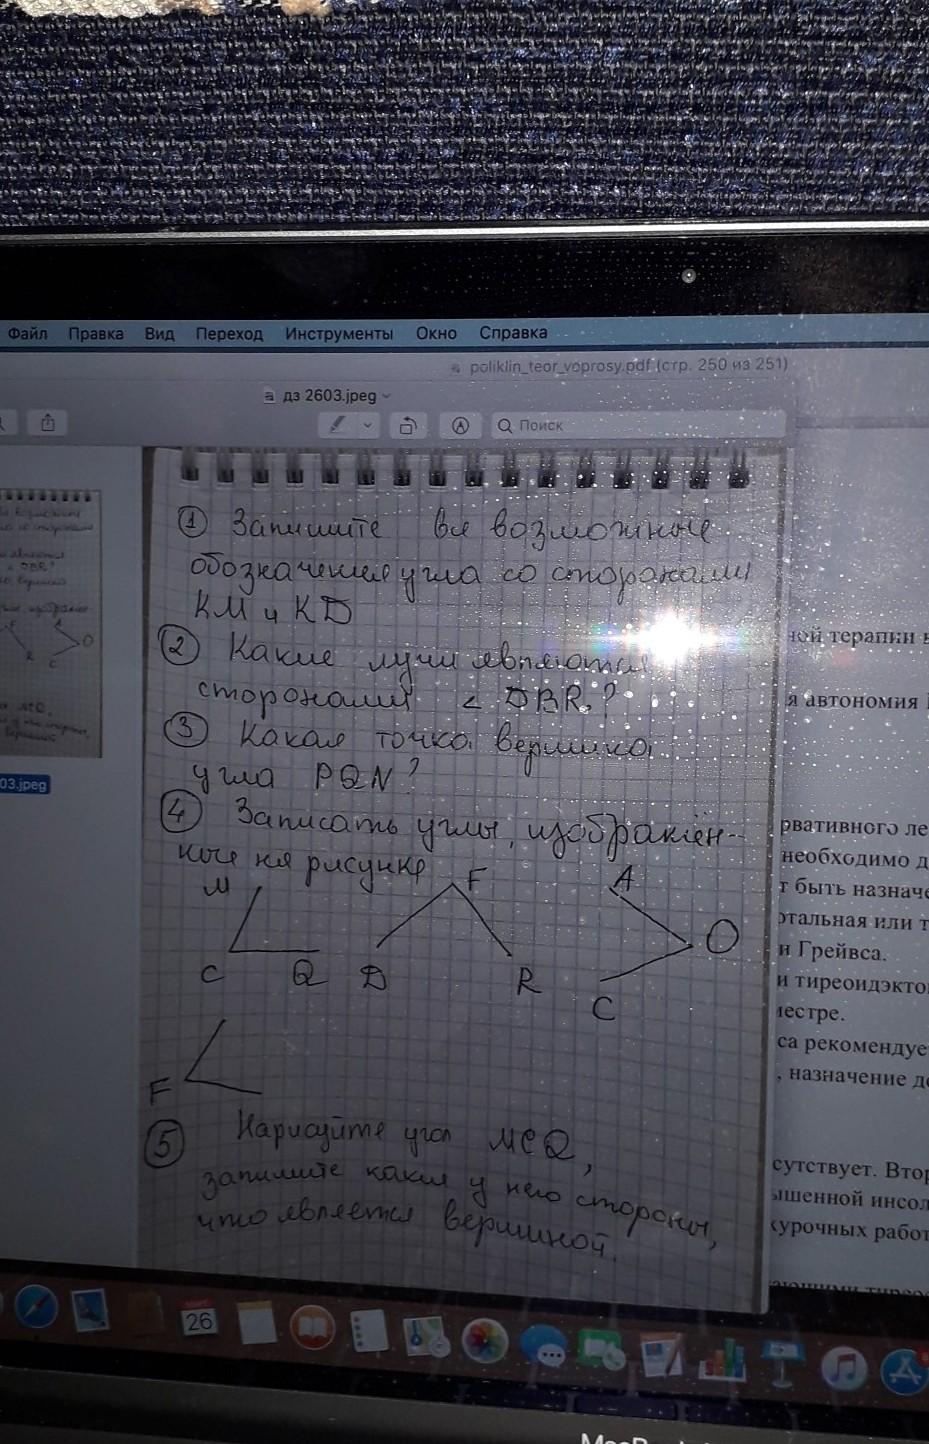 Файл Правка Вид Переход Инструменты Окно Справка
poliklin_teor_voprosy.pdf (стр. 250 из 251)
дз 2603.jpeg
Поиск
① Запишите все возможные
обозначения угла со сторонами
KM и KD
② Какие лучи являются
сторонами < DBR?
③ Какая точка вершина
угла PQN?
④ Записать углы, изображён-
ные на рисунке
M F A
O
C Q D R C
F
⑤ Нарисуйте угол MCQ,
запишите какие у него стороны,
что является вершиной.
03.jpeg
ной терапии
я автономия
рвативного ле
необходимо д
т быть назначе
отальная или т
и Грейвса.
и тиреоидэкто
местре.
са рекомендуе
, назначение д
сутствует. Втор
ышенной инсол
курочных работ
МАРТ
26